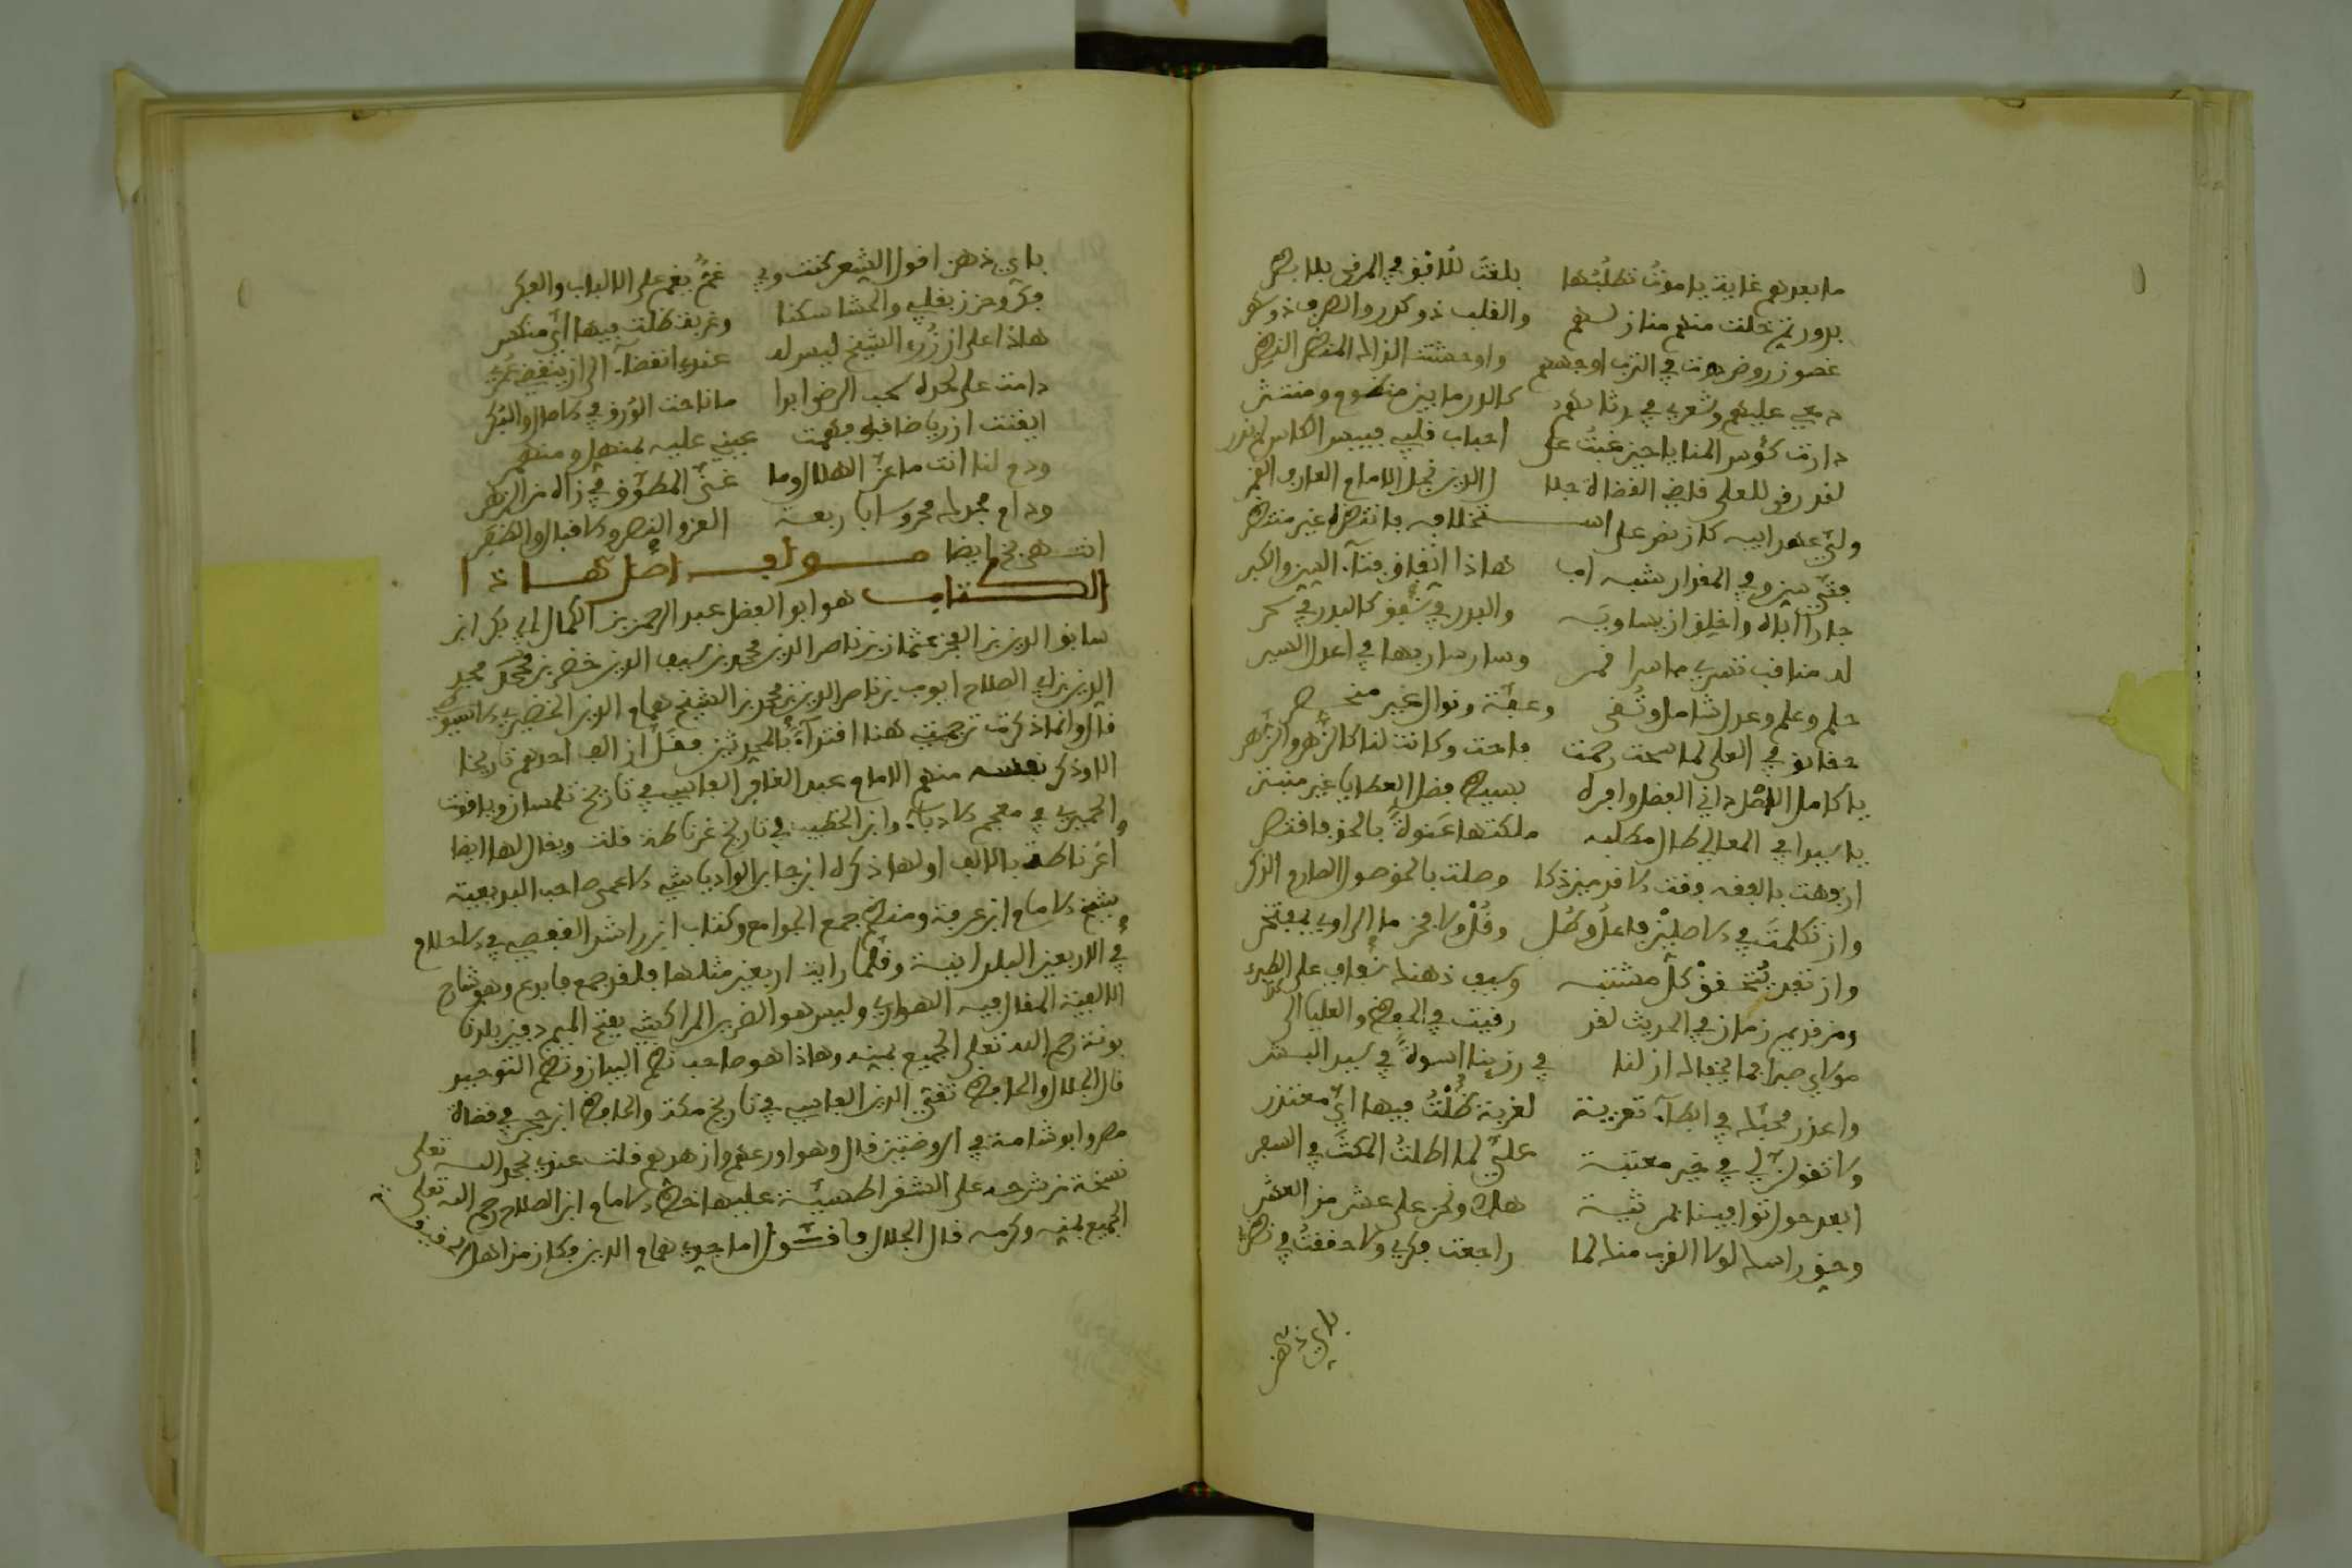 ما بعدهم غاية يا موت تطلبها بلغت للافق في المرقى بلا بصر
بدور تم خلت منهم منازلهم والقلب ذو كدر والطرف ذو سهر
غصون روض هوت في الترب اوجههم واوحشت الذاك المنظر النضر
دمعي عليهم وشعري في رثائهم كالدر ما بين منظوم ومنتثر
دارت كؤس المنايا حين غبت على احباب قلبي فبيس الكاس لم تدر
لقد رقى للعلى قاضي القضاة جلا ل الدين نجل الامام العارف الغمر
ولي عهد ابيه كان نص على استخلافه فانتظره غير منتظر
فتى سيرو في المقدار شبه اب هاذا اتفاق فتاء السن والكبر
جارا اباه واخلق ان يساويه والبدر في شفق كالبدر في سحر
له مناقب تسري ما سرا قمر وسار سار بها في اعدل السير
حلم وعلم وعدل شامل وتقى وعفة ونوال غير منحصر
حفايق في العلى لما سمحت رحمت فاحت وكانت لنا كالزهر والزهر
يا كامل الاصل داني الفضل وافره بسيط فضل العطايا غير منبتر
يا سيدا في المعالي طال مطلبه ملكتها عنوة بالحق فاقتصر
ان فهت بالفقه فقت الاقدمين ذكا وصلت بالحق صول الصارم الذكر
وان تكلمت في الاصلين فاعل وطل وقل ولا فخر ما الرازي بمفتخر
وان تفه بتحقيق كل مشتبه وسيف ذهنك شفاف على الطرر
ومن قديم زمان في الحديث لقد رقيت في الحفظ والعليا الى
مولاي صبرا فما يخفاك ان لنا في رزينا اسوة في سيد البشر
واعذر محبك في ابطاء تعزية لغربة ظلت فيها اي معتذر
ولا تقولن لي في غير معتبة علي لما اطلت المكث في السفر
ابعد حول توافينا بمرثية هلا ونحن على عشر من العشر
وحق راسك لولا القرب منك لما راجعت فكري ولا حققت في نظر
باي ذهن
باي ذهن اقول الشعر كنت وبي غم يغم على الالباب والفكر
فكر وحزن بقلبي والحشا سكنا وغربة ظلت فيها اي منكسر
هاذا على ان رزء الشيخ ليس له عندي انقضاء الى ان ينقضي عمري
دامت على لحده سحب الرضى ابدا ما ناحت الورق في الاصال والبكر
ايقنت ان رياضا قبله فهمت عيني عليه بمنهل ومنهمر
ودم لنا انت ما عن الهلال وما غنى المطوق في زاه من الزهر
ودام مجدك محروسا باربعة العز والنصر والاقبال والظفر
انتهى ايضا مولف اصل هاذا
الكتاب هو ابو الفضل عبد الرحمن بن الكمال ابي بكر ابن
سابق الدين بن الفخر عثمان بن ناصر الدين محمد بن سيف الدين خضر بن نجم
الدين بن ابي الصلاح ايوب بن ناصر الدين محمد بن الشيخ همام الدين الخضيري الاسيوطي
قال وانما ذكرت ترجمتي هنا اقتداء بالمحدثين فقل ان الف احدهم تاريخا
الا وذكر نفسه منهم الامام عبد الغافر الفارسي في تاريخ تلمسان وياقوت
الحموي في معجم الادباء وابن الخطيب في تاريخ غرناطة قلت ويقال لها ايضا
اغرناطة بالالف اولها ذكره ابن جابر الوادياشي الاعمى صاحب البديعية
شيخ الامام ابن عرفة ومنهم جمع الجوامع وكتاب ابن راشد القفصي في الاحلام
في الاربعين البلدانية وقلما رايت اربعين مثلها فلقد جمع فابدع وهو شارح
الالفية المقال فيه الهواري وليس هو الضرير المراكشي بفتح الميم دفين بلدنا
بونة رحم الله تعلى الجميع بمنه وهاذا هو صاحب نظم البيان ونظم التوحيد
قال الجلال والحافظ تقي الدين الفاسي في تاريخ مكة والحافظ ابن حجر في قضاة
مصر وابو شامة في الروضتين قال وهو اورعهم وازهدهم قلت عندي بحمد الله تعلى
نسخة من شرحه على الشقراطيسية عليها خط الامام ابن الصلاح رحم الله تعلى
الجميع بمنه وكرمه قال الجلال فاقول اما جدي همام الدين فكان من اهل